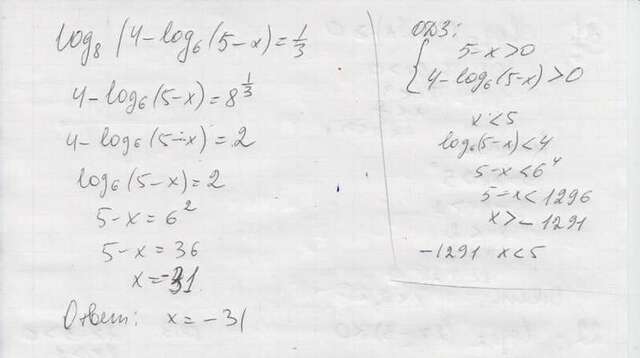 log₈(4-log₆(5-x)=1/3
4-log₆(5-x)=8^(1/3)
4-log₆(5-x)=2
log₆(5-x)=2
5-x=6²
5-x=36
x=-31
Ответ: x=-31
ОДЗ:
{ 5-x>0
4-log₆(5-x)>0
x<5
log₆(5-x)<4
5-x<6⁴
5-x<1296
x>-1291
-1291 x<5